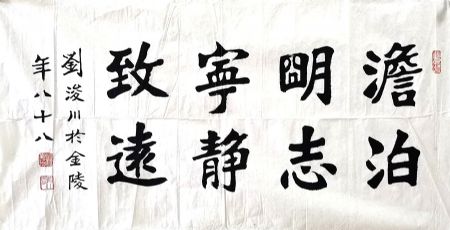 澹泊
明志
寧静
致遠
劉浚川於金陵
年八十八